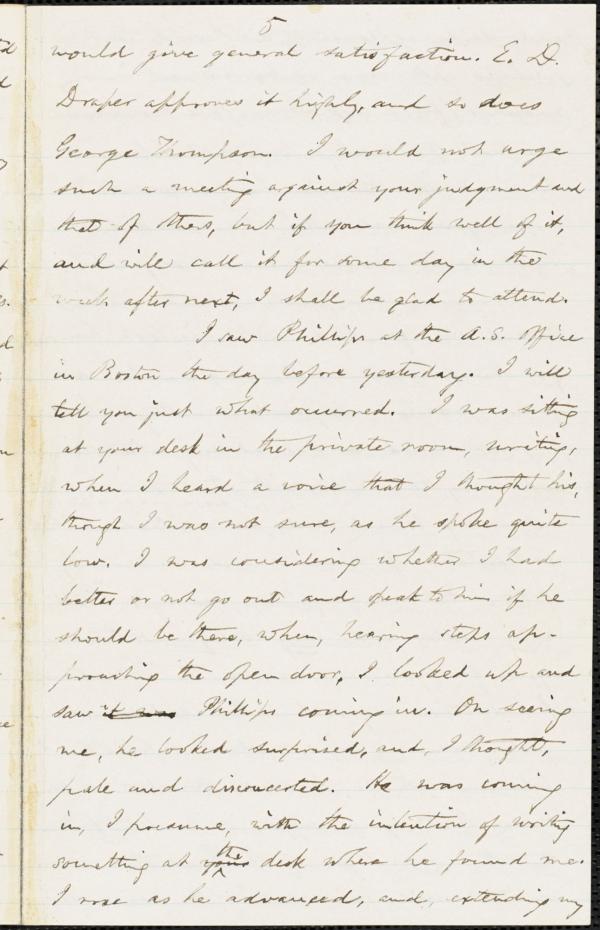 5
would give general satisfaction. E. D.
Draper approves it highly, and so does
George Thompson. I would not urge
such a meeting against your judgment and
that of others, but if you think well of it,
and will call it for some day in the
week after next, I shall be glad to attend.
I saw Phillips at the A. S. Office
in Boston the day before yesterday. I will
tell you just what occurred. I was sitting
at your desk in the private room, writing,
when I heard a voice that I thought his,
though I was not sure, as he spoke quite
low. I was considering whether I had
better or not go out and speak to him if he
should be there, when, hearing steps ap-
proaching the open door, I looked up and
saw it was Phillips coming in. On seeing
me, he looked surprised, and, I thought,
pale and disconcerted. He was coming
in, I presume, with the intention of writing
something at your the desk where he found me.
I rose as he advanced, and, extending my